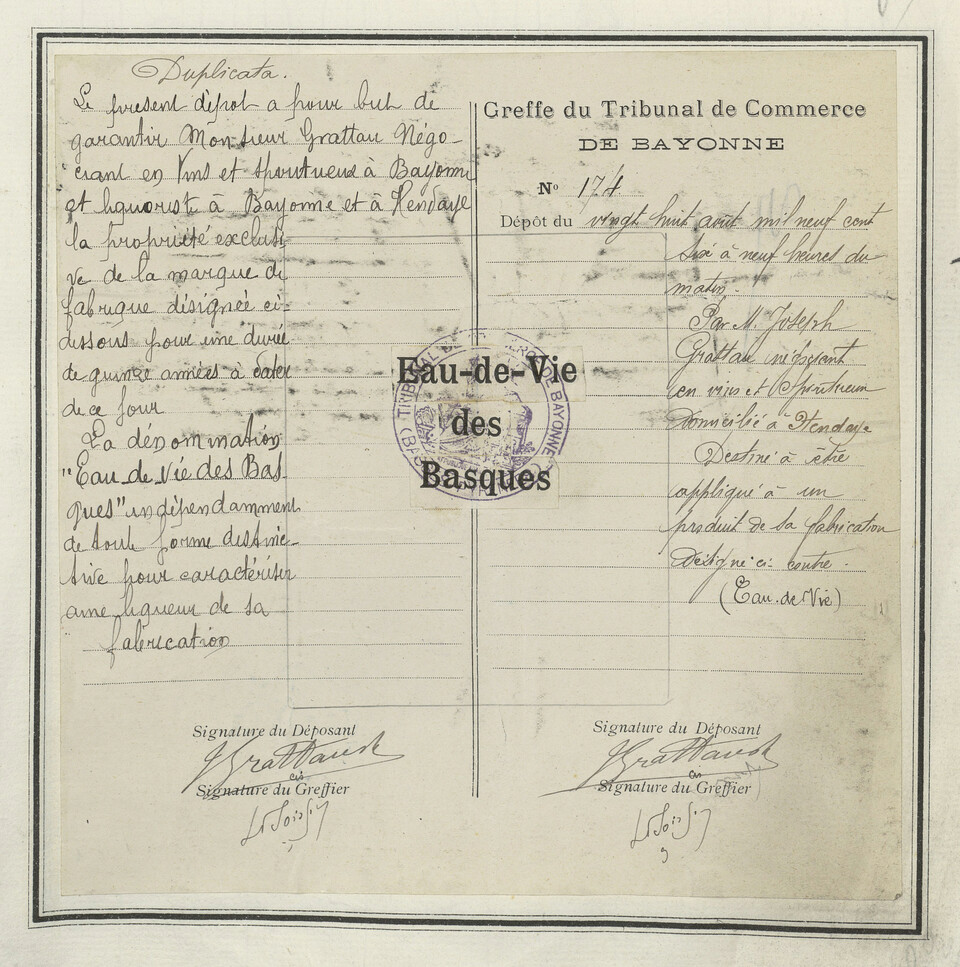 Duplicata.
Le présent dépot a pour but de
garantir Monsieur Grattau Négo-
ciant en Vins et Spiritueux à Bayonne
et liquorist à Bayonne et à Hendaye
la propriété exclusi
ve de la marque de
fabrique désignée ci-
dessous pour une durée
de quinze années à dater
de ce jour
La dénomination
"Eau de Vie des Bas
ques" indépendamment
de toute forme distinc-
tive pour caractériser
une liqueur de sa
fabrication
Signature du Déposant
JGrattau
Signature du Greffier
Eau-de-Vie
des
Basques
TRIBUNAL DE COMMERCE DE BAYONNE
Greffe du Tribunal de Commerce
DE BAYONNE
No 174
Dépôt du vingt huit août mil neuf cent
six à neuf heures du
matin.
Par M. Joseph
Grattau négociant
en vins et Spiritueux
Domicilié à Hendaye
Destiné à être
appliqué à un
produit de sa fabrication
Désigné ci-contre.
(Eau.de Vie)
Signature du Déposant
JGrattau
Signature du Greffier